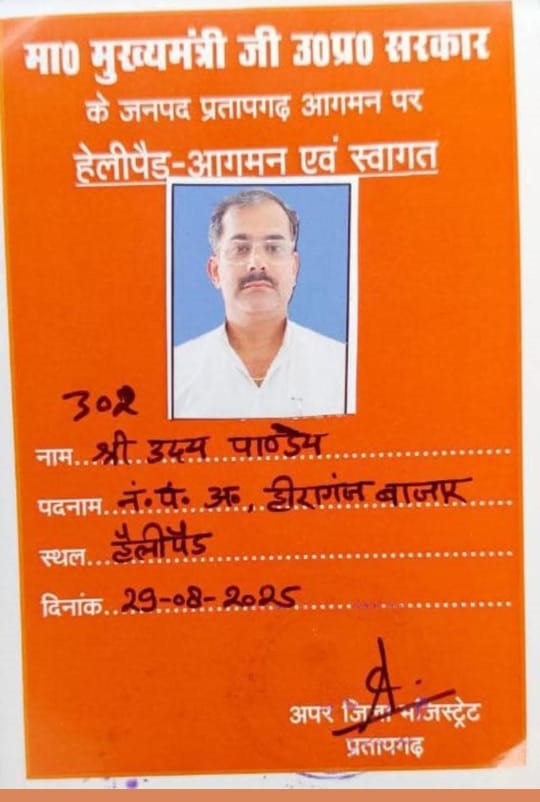 मा0 मुख्यमंत्री जी उ0प्र0 सरकार
के जनपद प्रतापगढ़ आगमन पर
हेलीपैड-आगमन एवं स्वागत
302
नाम...श्री उदय पाण्डेय
पदनाम...नं.पं. अ., हीरागंज बाजार
स्थल...हैलीपैड
दिनांक...29-08-2025
अपर जिला मजिस्ट्रेट
प्रतापगढ़